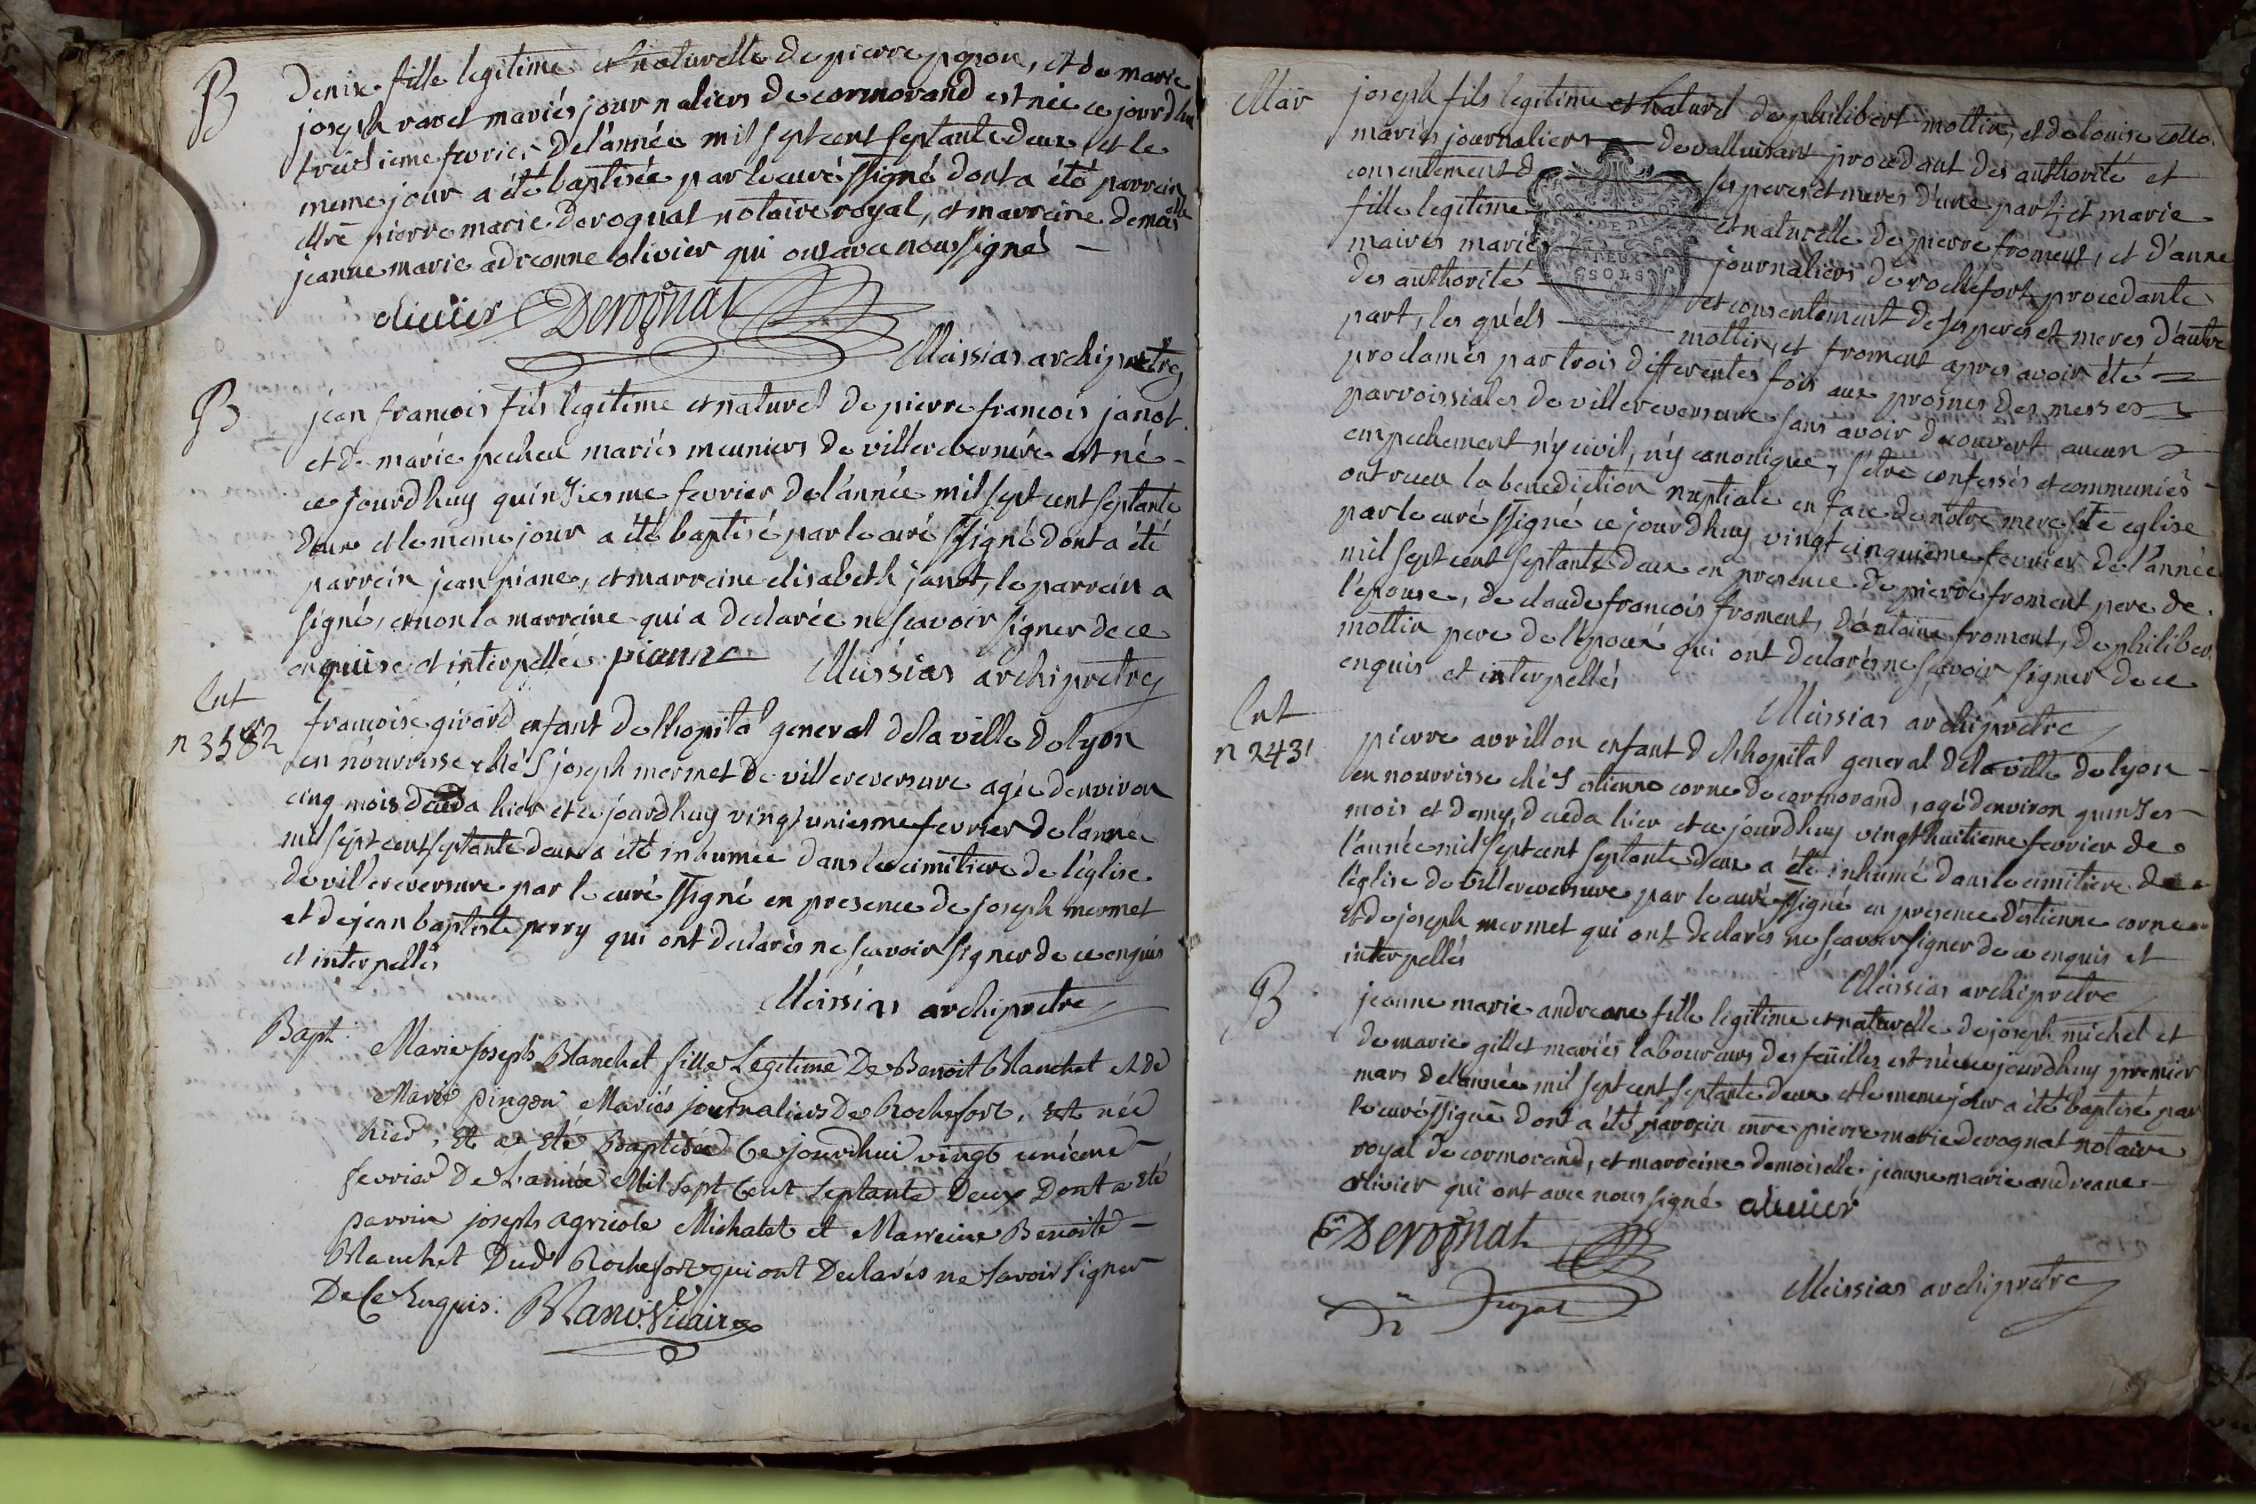 B
Denise fille legitime et naturelle de pierre popon, et de marie
joseph ravet mariés journaliers de cormorand est née ce jourdhuy
treisieme fevrier de l'année mil sept cent septante deux et le
meme jour a été baptisée par le curé ssigné dont a été parrein
Mre pierre marie derognat notaire royal, et marreine demoiselle
jeanne marie adreanne olivier qui ont avec nous signé
olivier Derognat
Meissias archiprêtre
B
jean françois fils legitime et naturel de pierre françois janot
et de marie pecheu mariés meuniers de villereversure est né
ce jourdhuy quinsiesme fevrier de l'année mil sept cent septante
deux et le meme jour a été baptisé par le curé ssigné dont a été
parrein jean piane, et marreine elisabeth janot, le parrein a
signé, et non la marreine qui a declarée ne scavoir signer de ce
enquise et interpellée pianne Meissias archipretre
Ent
n 3582
françoise girard enfant de l'hopital general de la ville de lyon
en nourrisse chés joseph mermet de villereversure agée denviron
cinq mois deceda hier et ce jourdhuy vingt uniesme fevrier de l'année
mil sept cent septante deux a été inhumée dans le cimitiere de l'église
de villereversure par le curé ssigné en presence de joseph mermet
et de jean baptiste perry qui ont declarés ne scavoir signer de ce enquis
et interpellés
Meissias archipretre
Bapt:
Marie Joseph Blanchet fille Legitime De Benoit Blanchet et de
Marie pingeon Mariés journaliers De Rochefort, est née
hier, et a été Baptisée Ce jourdhui vingt unième
fevrier De L'année Mil Sept Cent Septante Deux Dont a été
parrin joseph agricole Michalet et Marreine Benoite
Blanchet Dud Rochefort qui ont Declarés ne Savoir Signer
De Ce Enquis. Vicaire
Mar
joseph fils legitime et naturel de philibert mottin, et de louise
mariés journaliers de valluisant procedant des authorité et
consentement de ses peres et meres d'une part, et marie
fille legitime et naturelle de pierre froment, et d'anne
maires mariés journaliers de rochefort procedante
des authorité et consentement de ses peres et meres d'autre
part, les quels mottin, et froment apres avoir été
proclamés par trois differentes fois aux prosnes des messes
parroissiales de villereversure sans avoir decouvert aucun
empechement n'y civil, n'y canonique, s'être confessés et communiés
ont receu la benediction nuptiale en face de notre mere ste eglise
par le curé ssigné ce jourdhuy vingt cinquieme fevrier de l'année
mil sept cent septante deux en presence de pierre froment pere de
l'epouse, de claude françois froment, d'antoine froment, de philibert
mottin pere de l'epoux qui ont declarés ne scavoir signer de ce
enquis et interpellés
Meissias archipretre
Ent
n 2431
pierre avrillon enfant de l'hopital general de la ville de lyon
en nourrisse chés etienne corne de cormorand, agé denviron quinses
mois et demy, deceda hier et ce jourdhuy vingthuitieme fevrier de
l'année mil sept cent septante deux a été inhumé dans le cimitiere de
l'église de villereversure par le curé ssigné en presence d'estienne corne
et de joseph mermet qui ont declarés ne scavoir signer de ce enquis et
interpellés
Meissias archipretre
B
jeanne marie andreane fille legitime et naturelle de joseph michel et
de marie gillet mariés laboureurs des feüilles est née ce jourdhuy premier
mars de l'année mil sept cent septante deux et le meme jour a été baptisé par
le curé ssigné dont a été parrein mre pierre marie derognat notaire
royal de cormorand, et marreine demoiselle jeanne marie andreane
olivier qui ont avec nous signé olivier
Derognat
Meissias archipretre